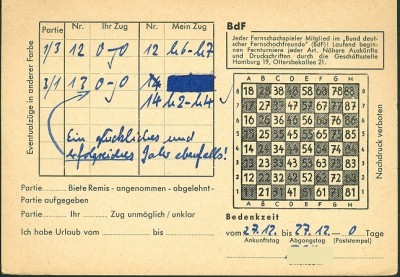 Partie Nr. Ihr Zug Nr. Mein Zug
1/3 12 0-0 12 h6-h7
3/1 13 0-0 14
14 h2-h4
Ein glückliches und
erfolgreiches Jahr ebenfalls!
Eventualzüge in anderer Farbe
Partie........ Biete Remis - angenommen - abgelehnt -
Partie aufgegeben
Partie........ Ihr ........ Zug unmöglich / unklar
Ich habe Urlaub vom ........ bis ........
BdF
Jeder Fernschachspieler Mitglied im "Bund deut-
scher Fernschachfreunde" (BdF)! Laufend begin-
nen Fernturniere jeder Art. Nähere Auskünfte
und Druckschriften durch die Geschäftsstelle
Hamburg 19, Ottersbekallee 21.
A B C D E F G H
8 18 28 38 48 58 68 78 88 8
7 17 27 37 47 57 67 77 87 7
6 16 26 36 46 56 66 76 86 6
5 15 25 35 45 55 65 75 85 5
4 14 24 34 44 54 64 74 84 4
3 13 23 33 43 53 63 73 83 3
2 12 22 32 42 52 62 72 82 2
1 11 21 31 41 51 61 71 81 1
A B C D E F G H
Nachdruck verboten
Bedenkzeit
vom 27.12. bis 27.12. — 0 Tage
Ankunftstag Abgangstag (Poststempel)